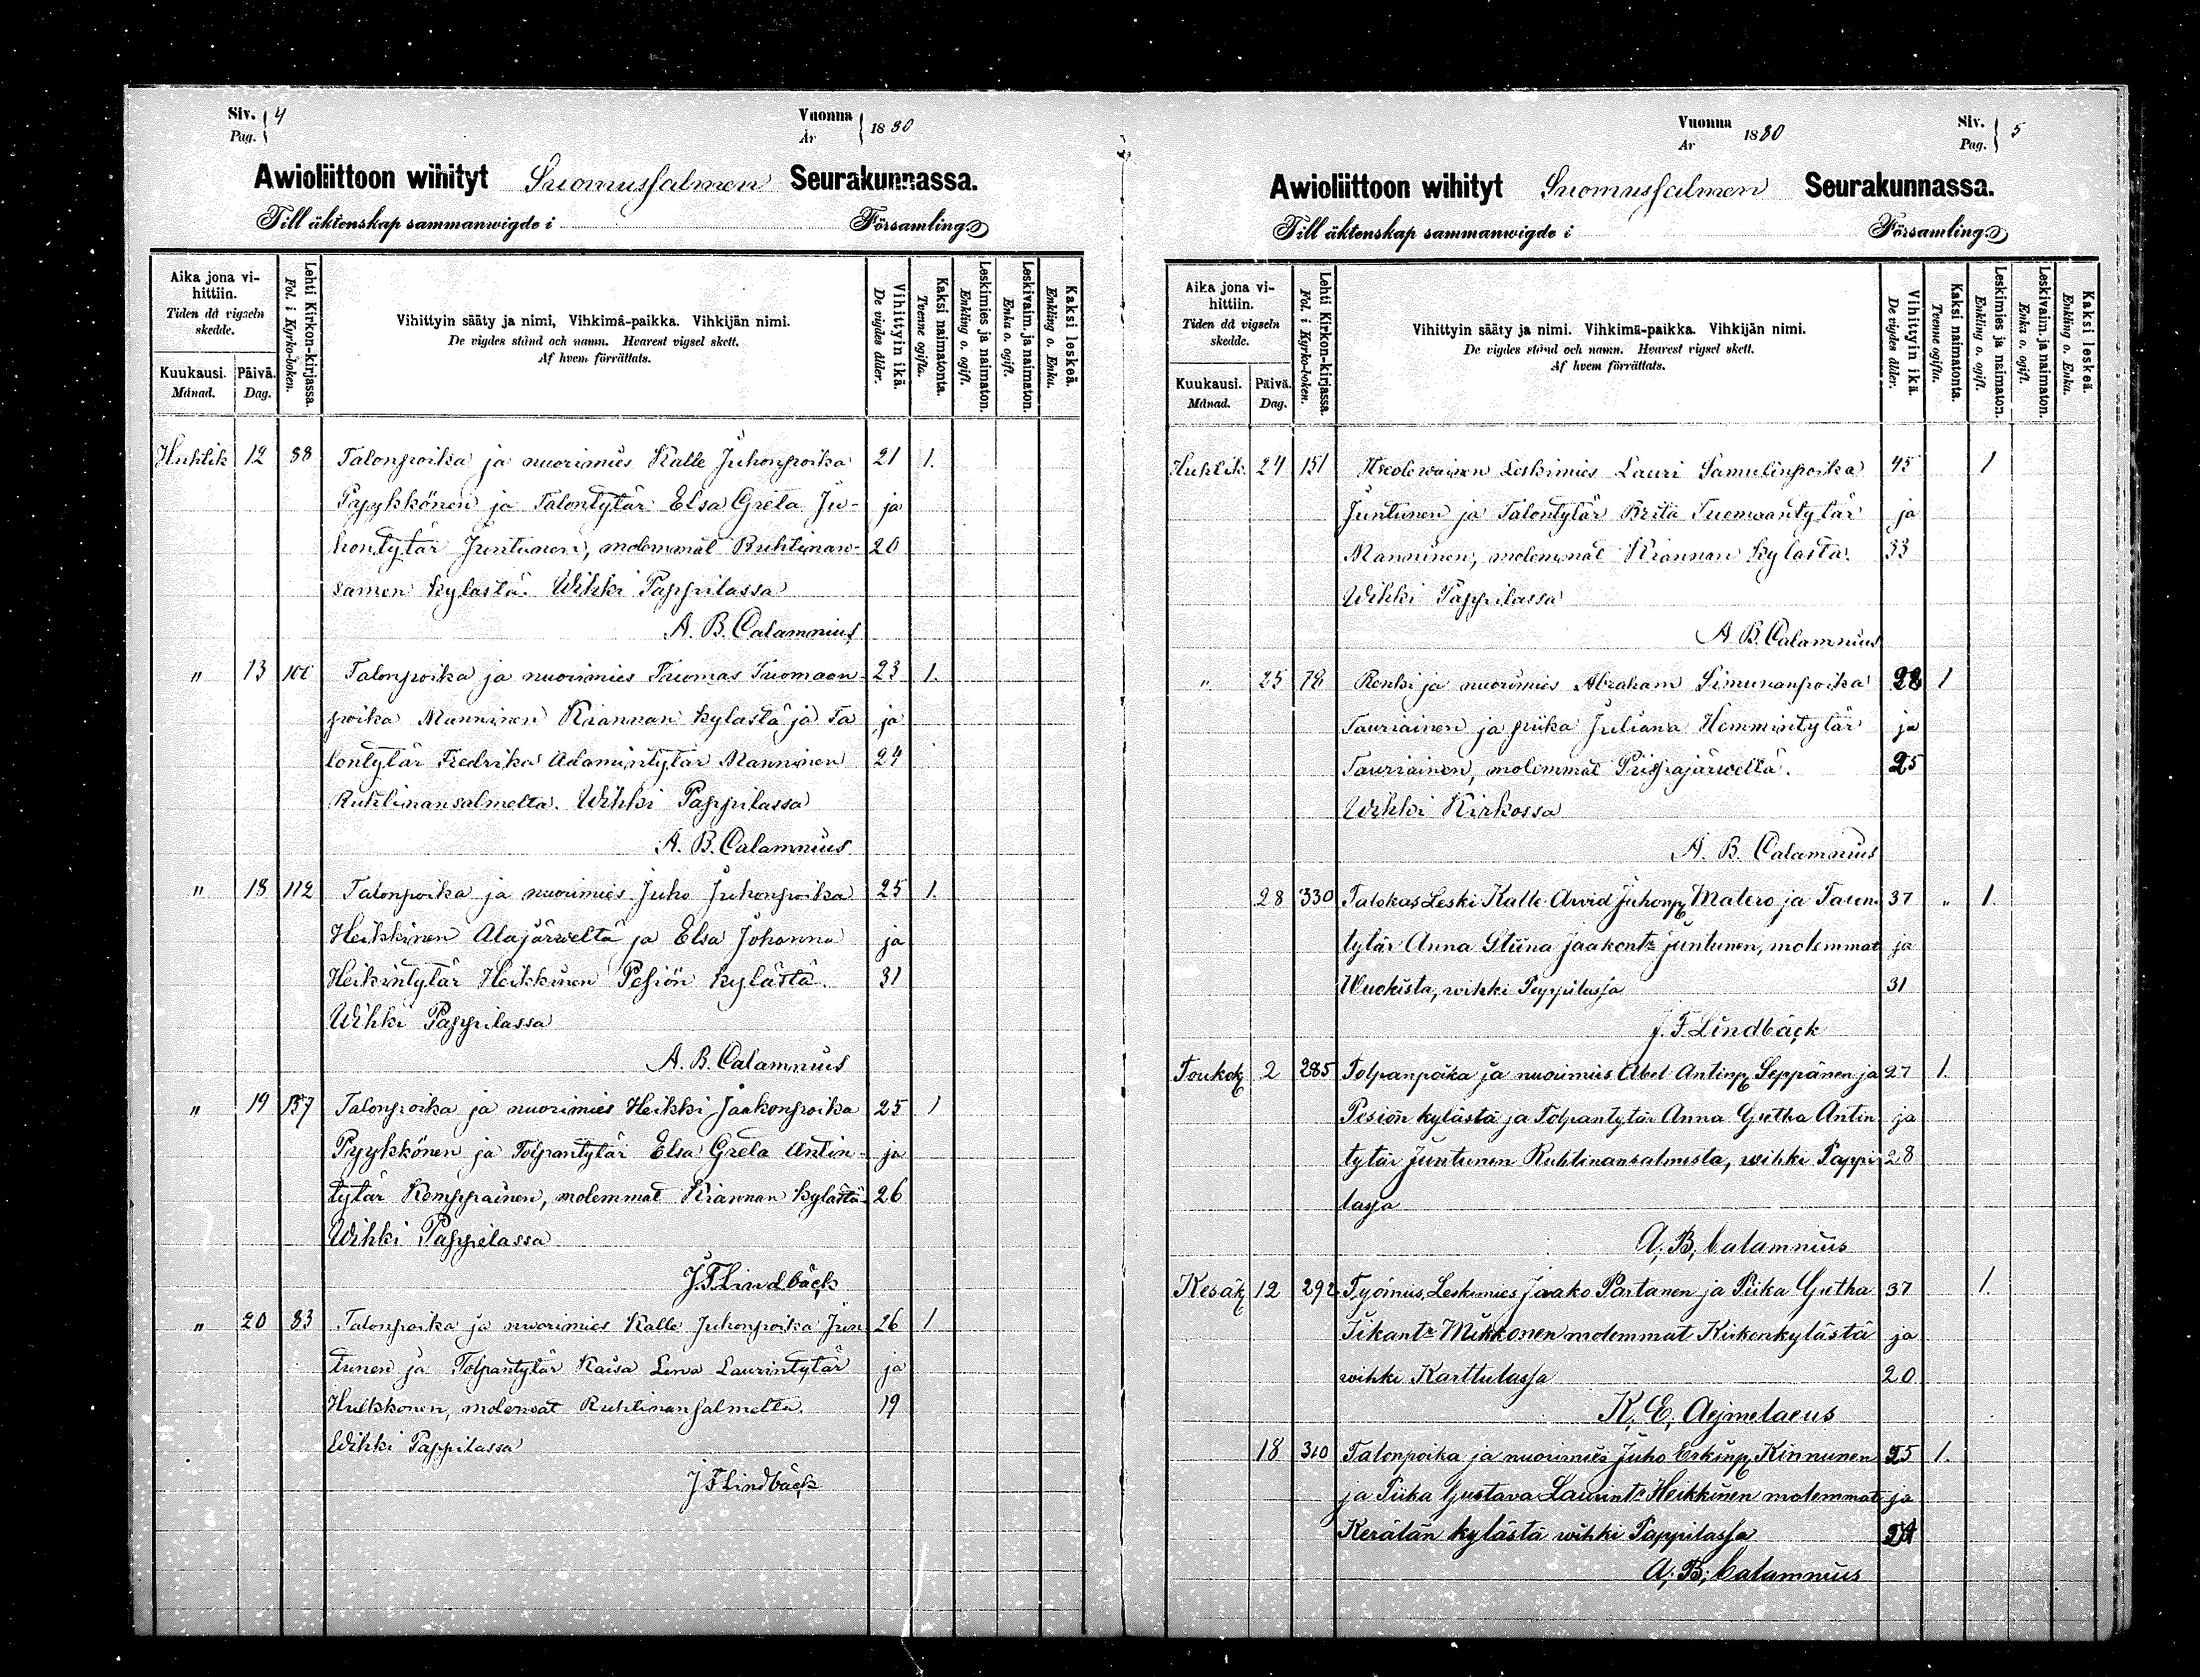 Siv. 4
Pag.
Vuonna 1880
År
Awioliittoon wihityt Suomussalmen Seurakunnassa.
Till äktenskap sammanwigde i Församling.
Aika jona vihittiin.
Tiden då vigseln skedde.
Kuukausi.
Månad.
Päivä.
Dag.
Lehti Kirkon-kirjassa.
Fol. i Kyrko-boken.
Vihittyin sääty ja nimi, Vihkimä-paikka. Vihkijän nimi.
De vigdes stånd och namn. Hvarest vigsel skett.
Af hvem förrättats.
Vihittyin ikä.
De vigdes ålder.
Kaksi naimatonta.
Tvenne ogifta.
Leskimies ja naimaton.
Enkling o. ogift.
Leskivaim. ja naimaton.
Enka o. ogift.
Kaksi leskeä.
Enkling o. Enka.
Huhtik 12 88 Talonpoika ja nuorimies Kalle Juhonpoika 21 1.
Pyykkönen ja Talontytär Elsa Greta Ju- ja
hontytär Juntunen, molemmat Ruhtinan- 20
samen kylästä. Wihki Pappilassa
A. B. Calamnius
" 13 Talonpoika ja nuorimies Tuomas Tuomaan 23 1.
poika Manninen Kiannan kylästä ja Ta ja
lontytär Fredrika Adamintytär Manninen 24
Ruhtinansalmelta. Wihki Pappilassa
A. B. Calamnius
" 18 112 Talonpoika ja nuorimies Juho Juhonpoika 25 1.
Heikkinen Alajärweltä ja Elsa Johanna ja
Heikintytär Heikkinen Pesiön kylästä. 31
Wihki Pappilassa
A. B. Calamnius
" 19 157 Talonpoika ja nuorimies Heikki Jaakonpoika 25 1
Pyykkönen ja Tolpantytär Elsa Greta Antin- ja
tytär Kemppainen, molemmat Kiannan kylästä 26
Wihki Pappilassa
J. F Lindbäck
" 20 83 Talonpoika ja nuorimies Kalle Juhonpoika Jun 26 1
tunen ja Tolpantytär Kaisa Lena Laurintytär ja
Hulkkonen, molemat Ruhtinansalmelta. 19
Wihki Pappilassa
J F Lindbäck
Vuonna 1880
År
Siv. 5
Pag.
Awioliittoon wihityt Suomussalmen Seurakunnassa.
Till äktenskap sammanwigde i Församling.
Aika jona vihittiin.
Tiden då vigseln skedde.
Kuukausi.
Månad.
Päivä.
Dag.
Lehti Kirkon-kirjassa.
Fol. i Kyrko-boken.
Vihittyin sääty ja nimi. Vihkimä-paikka. Vihkijän nimi.
De vigdes stånd och namn. Hvarest vigsel skett.
Af hvem förrättats.
Vihittyin ikä.
De vigdes ålder.
Kaksi naimatonta.
Tvenne ogifta.
Leskimies ja naimaton.
Enkling o. ogift.
Leskivaim. ja naimaton.
Enka o. ogift.
Kaksi leskeä.
Enkling o. Enka.
Huhtik. 24 151 Leskimies Lauri Samulinpoika 45 1
Juntunen ja Talontytär Brita Tuomaantytär ja
Manninen, molemmat Kiannan kylästä. 33
Wihki Pappilassa
A B. Calamnius
" 25 78 Renki ja nuorimies Abraham Simunanpoika 28 1
Tauriainen ja piika Juliana Hemmintytär ja
Tauriainen, molemmat Pispajärweltä. 25
Wihki Kirkossa
A. B. Calamnius
28 330 Leski Kalle Arvid Juhonp Matero ja 37 " 1.
tytär Anna Stiina Jaakontr Juntunen, molemmat ja
Wuokista, wihki Pappilassa 31
J. F. Lindbäck
Toukok 2 285 Tolpanpoika ja nuorimies Abel Antinp Seppänen ja 27 1.
Pesiön kylästä ja Tolpantytär Anna Gretha Antin ja
tytär Juntunen Ruhtinansalmesta, wihki Pappi 28
lassa
A. B. Calamnius
Kesäk 12 292 Työmies, Leskimies Jaako Partanen ja Piika Gretha 37 1.
Iikantr Mikkonen molemmat Kirkonkylästä ja
wihki Karttulassa 20
K. E. Aejmelaeus
18 310 Talonpoika ja nuorimies Juho Erkinp Kinnunen 25 1.
ja Piika Gustava Laurintr Heikkinen molemmat ja
Kerälän kylästä wihki Pappilassa 24
A. B. Calamnius